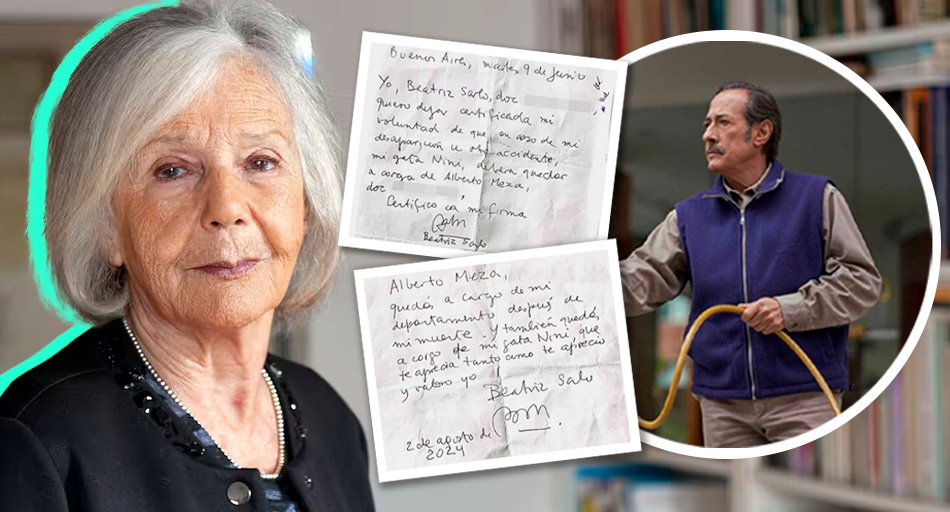 Buenos Aires, martes 9 de Junio
Yo, Beatriz Sarlo, doc
quiero dejar certificada mi
voluntad de que, en caso de mi
desaparición u otro accidente,
mi gata Nini, deberá quedar
a cargo de Alberto Meza,
doc
Certifico con mi firma
Beatriz Sarlo
Alberto Meza,
quedás a cargo de mi
departamento después de
mi muerte y también quedás
a cargo de mi gata Nini, que
te aprecia tanto como te aprecio
y valoro yo
Beatriz Sarlo
2 de agosto de
2024